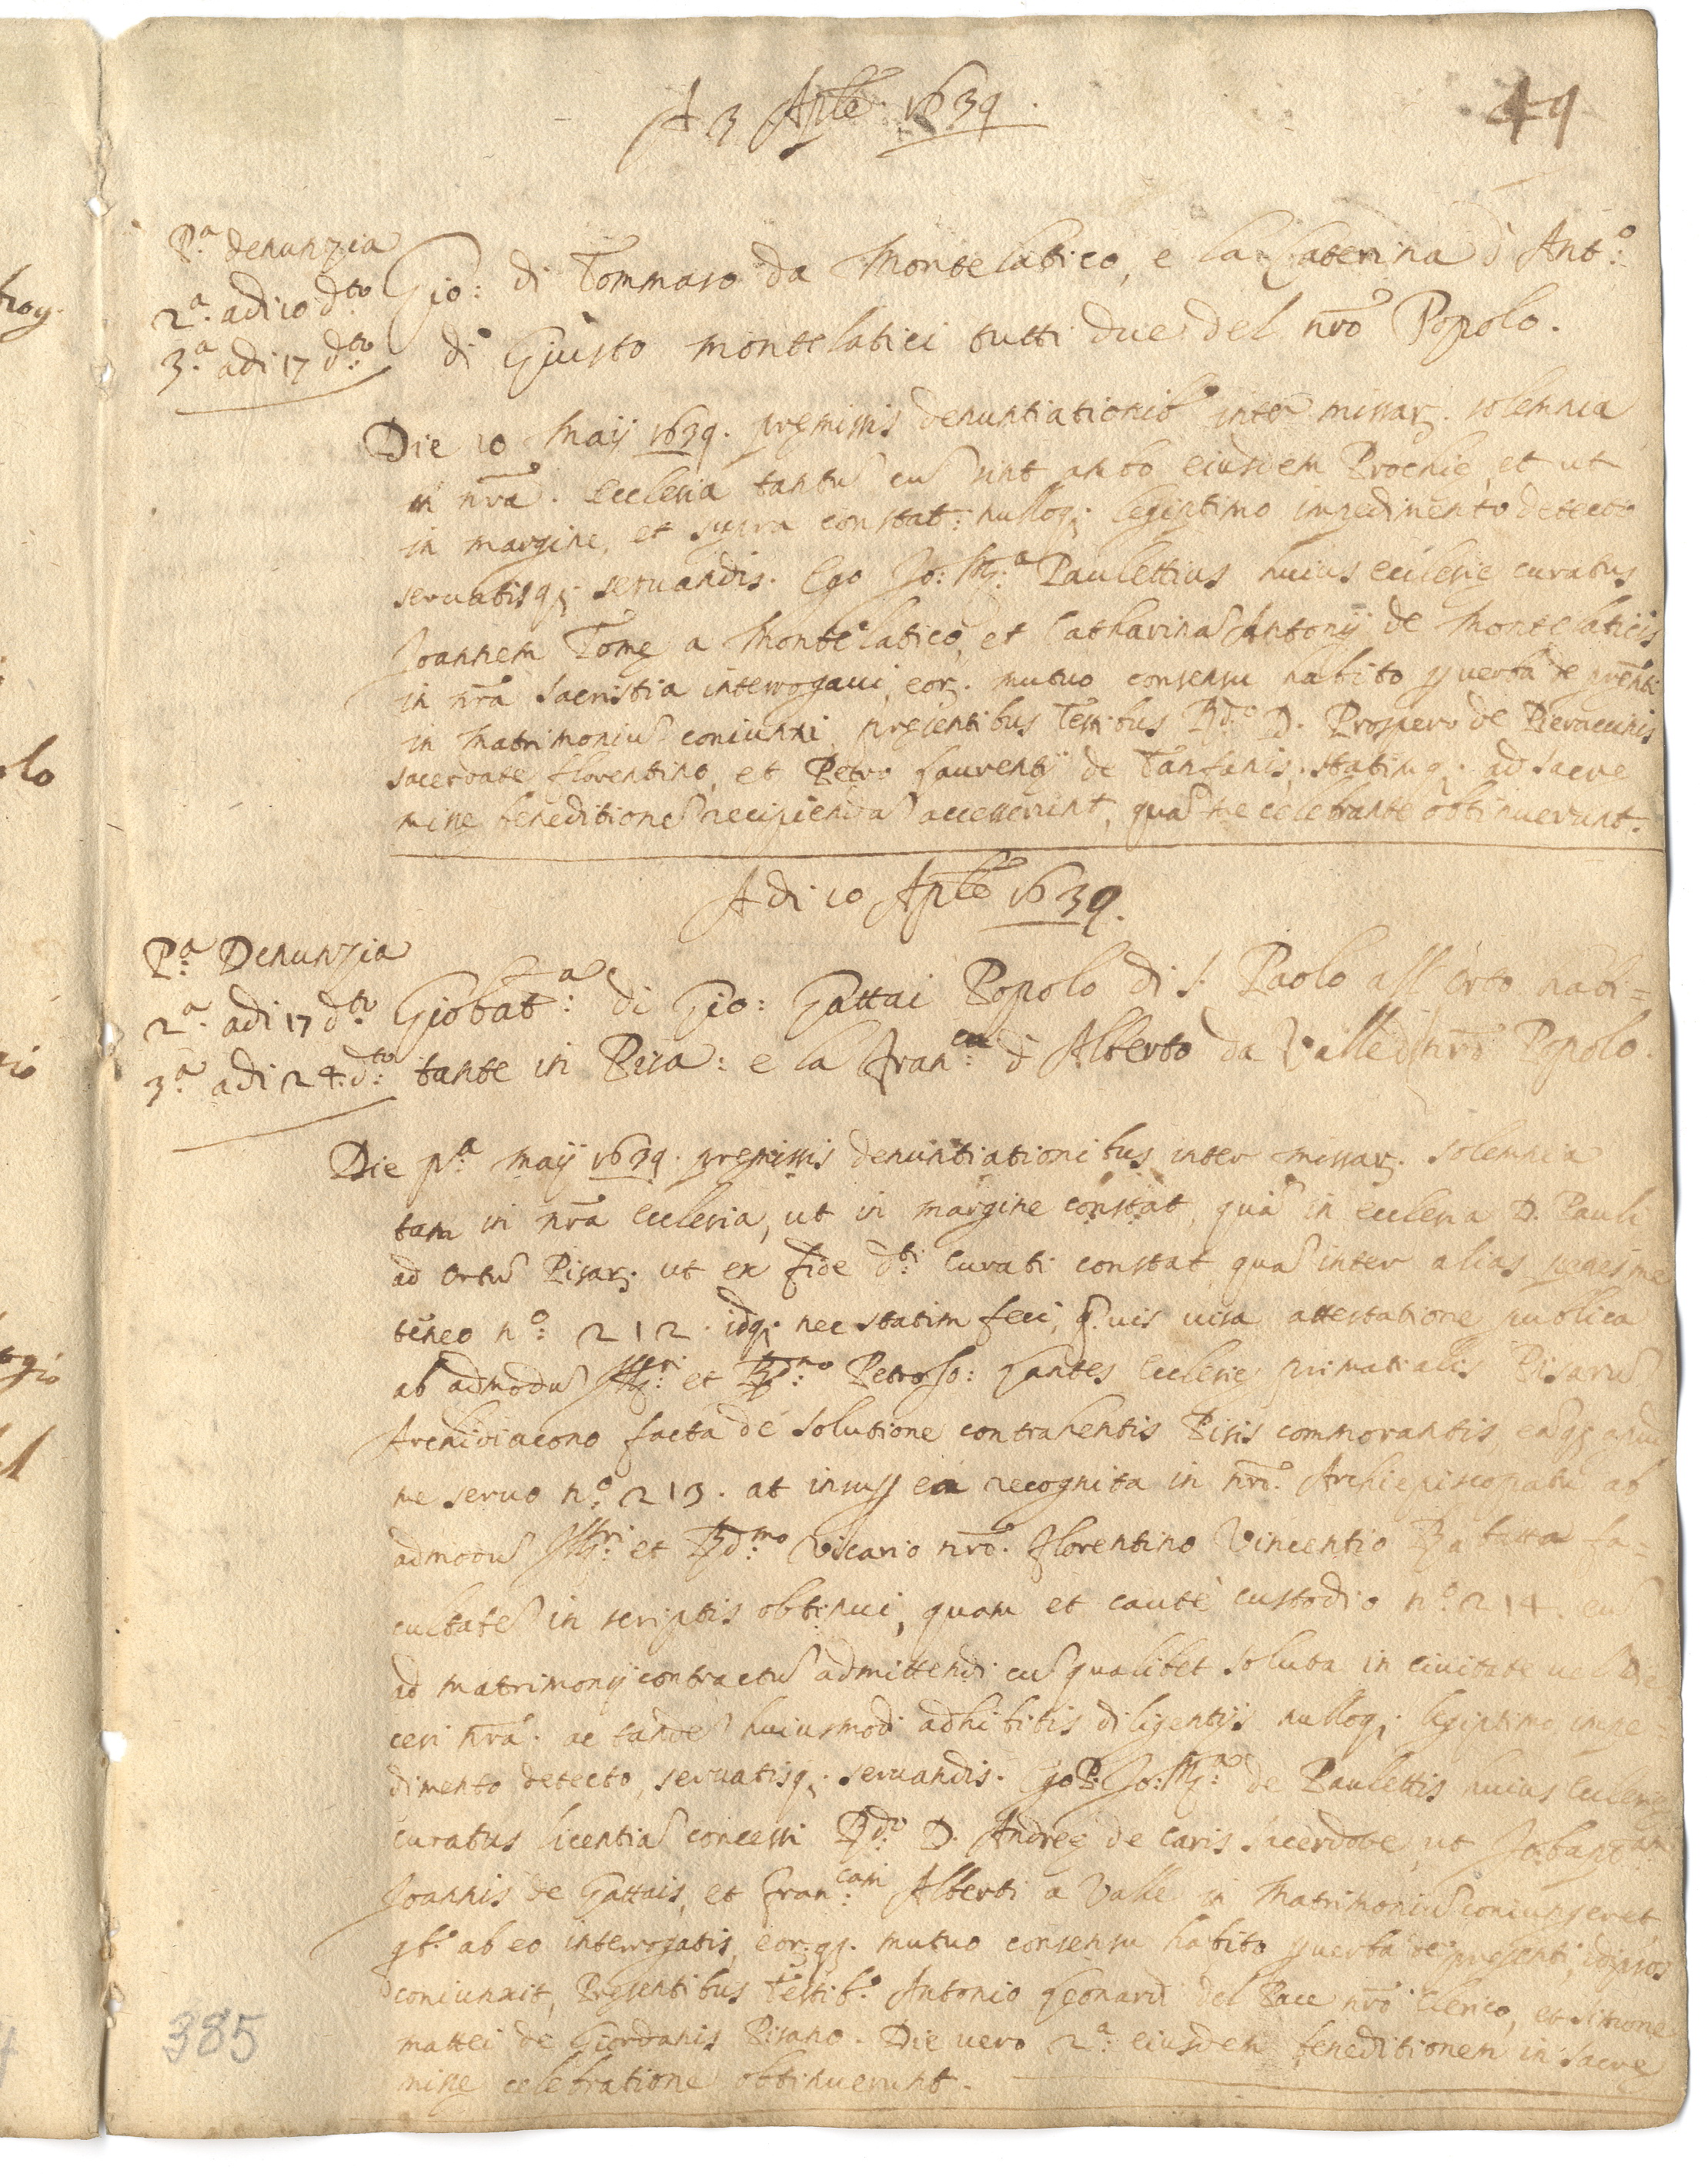 A 3 Aple 1639.
49
Pa. denunzia
2a. adi 10 dto
3a. adi 17 dto
Gio: di Tommaso da Montelatico, e la Caterina d Anto:
di Giusto montelatici tutti due del nro Popolo.
Die 10 Maij 1639. premissis denuntiationib' inter missar. solemnia
in nra. ecclesia tantu cu sint ambo eiusdem Prochie, et ut
in margine, et supra constat: nulloq; legiptimo impedimento detecto
servatisq; servandis. Ego Jo: Ma Paulettius huius ecclesie curatus
Joannem Tome a Montelatico, et Catharina Antonij de Montelaticis
in nra sacristia interrogavi, eor. mutuo consensu habito p verba de prenti
in Matrimoniu coniunxi, presentibus Testibus Rdo D. Prospero de Pieraccinis
sacerdote florentino, et Petro Laurentij de Tanfanis, statimq; ad sacre
misse benedictione recipienda accesserunt, qua me celebrante obtinuerunt.
Adi 10 Aple 1639.
Pa Denunzia
2a. adi 17 dto
3a adi 24. dto
Giobata: di Gio: Gattai Popolo di S. Paolo all'orto habi=
tante in Pisa: e la Fran:ca d Alberto da Valle d nro Popolo.
Die pa maij 1639. premissis denuntiationibus inter missar. solemnia
tam in nra ecclesia, ut in margine constat, qua in ecclesia D. Pauli
ad Ortu Pisar. ut ex fide dti Curati constat qua inter alias penes me
teneo no: 212. idq; nec statim feci, q.vis visa attestatione publica
ab admodu Illri: et Rdmo Petro Jo: ecclesie primatialis Pisaru
Archidiacono facta de solutione contrahentis Pisis commorantis, eaq; apud
me servo no. 213. at insup ea recognita in nro. Archiepiscopatu ab
admodu Illri: et Rdmo Vicario nro. Florentino Vincentio Rabatta fa=
cultate in scriptis obtinui, quam et caute custodio no. 214. eu
ad matrimonij contractu admittendi cu qualibet soluta in civitate vel Die
cesi nra. ac tande huiusmodi adhibitis diligentijs nulloq; legiptimo impe=
dimento detecto, servatisq; servandis. Ego P. Jo: Ma de Paulettis huius Ecclesie
curatus licentia concessi Rdo D. Andree de Caris sacerdote, ut Jobaptam
Joannis de Gattais, et Fran:cam Alberti a Valle in Matrimoniu coniungeret
qb. ab eo interrogatis, eor.q; mutuo consensu habito p verba de presenti,
coniunxit, Presentibus Testib. Antonio Leonardi del Pace nro Clerico, et Simone
mattei de Giordanis Pisano. Die vero 2a: eiusdem benedictionem in sacre
misse celebratione obtinuerunt.
385